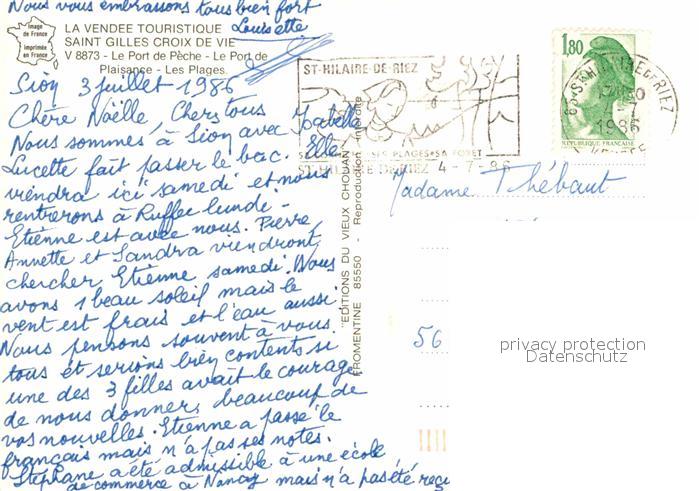 Nous vous embrassons tous bien fort
Louisette
Image
de France
imprimée
en France
LA VENDEE TOURISTIQUE
SAINT GILLES CROIX DE VIE
V 8873 - Le Port de Pêche - Le Port de
Plaisance - Les Plages.
Sion 3 juillet 1986
Chère Noëlle, Chers tous
Nous sommes à Sion avec Isabelle
Lucette fait passer le bac. Elle
viendra ici samedi et nous
rentrerons à Ruffec lundi -
Etienne est avec nous. Pierre,
Annette et Sandra viendront
chercher Etienne samedi. Nous
avons 1 beau soleil mais le
vent est frais et l'eau aussi.
Nous pensons souvent à vous
tous et serions bien contents si
une des 3 filles avait le courage
de nous donner beaucoup de
vos nouvelles. Etienne a passé le
français mais n'a pas ses notes.
Stéphane a été admissible à une école
de commerce à Nancy mais n'a pas été reçu
"EDITIONS DU VIEUX CHOUAN"
FROMENTINE 85550 - Reproduction Interdite
ST-HILAIRE-DE-RIEZ
SES PLAGES • SA FORET
ST HILAIRE DE RIEZ 4-7-86
1,80
REPUBLIQUE FRANÇAISE
85 ST HILAIRE DE RIEZ
1986
Madame Thébaut
56
privacy protection
Datenschutz